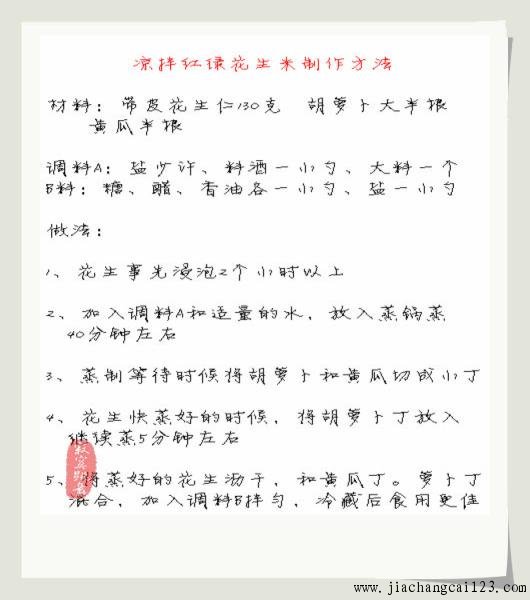 凉拌红绿花生米制作方法
材料：带皮花生仁130克 胡萝卜大半根
黄瓜半根
调料A：盐少许、料酒一小勺、大料一个
B料：糖、醋、香油各一小勺、盐一小勺
做法：
1、花生事先浸泡2个小时以上
2、加入调料A和适量的水，放入蒸锅蒸
40分钟左右
3、蒸制等待时候将胡萝卜和黄瓜切成小丁
4、花生快蒸好的时候，将胡萝卜丁放入
继续蒸5分钟左右
5、将蒸好的花生沥干，和黄瓜丁。萝卜丁
混合，加入调料B拌匀，冷藏后食用更佳
www.jiachangcai123.com